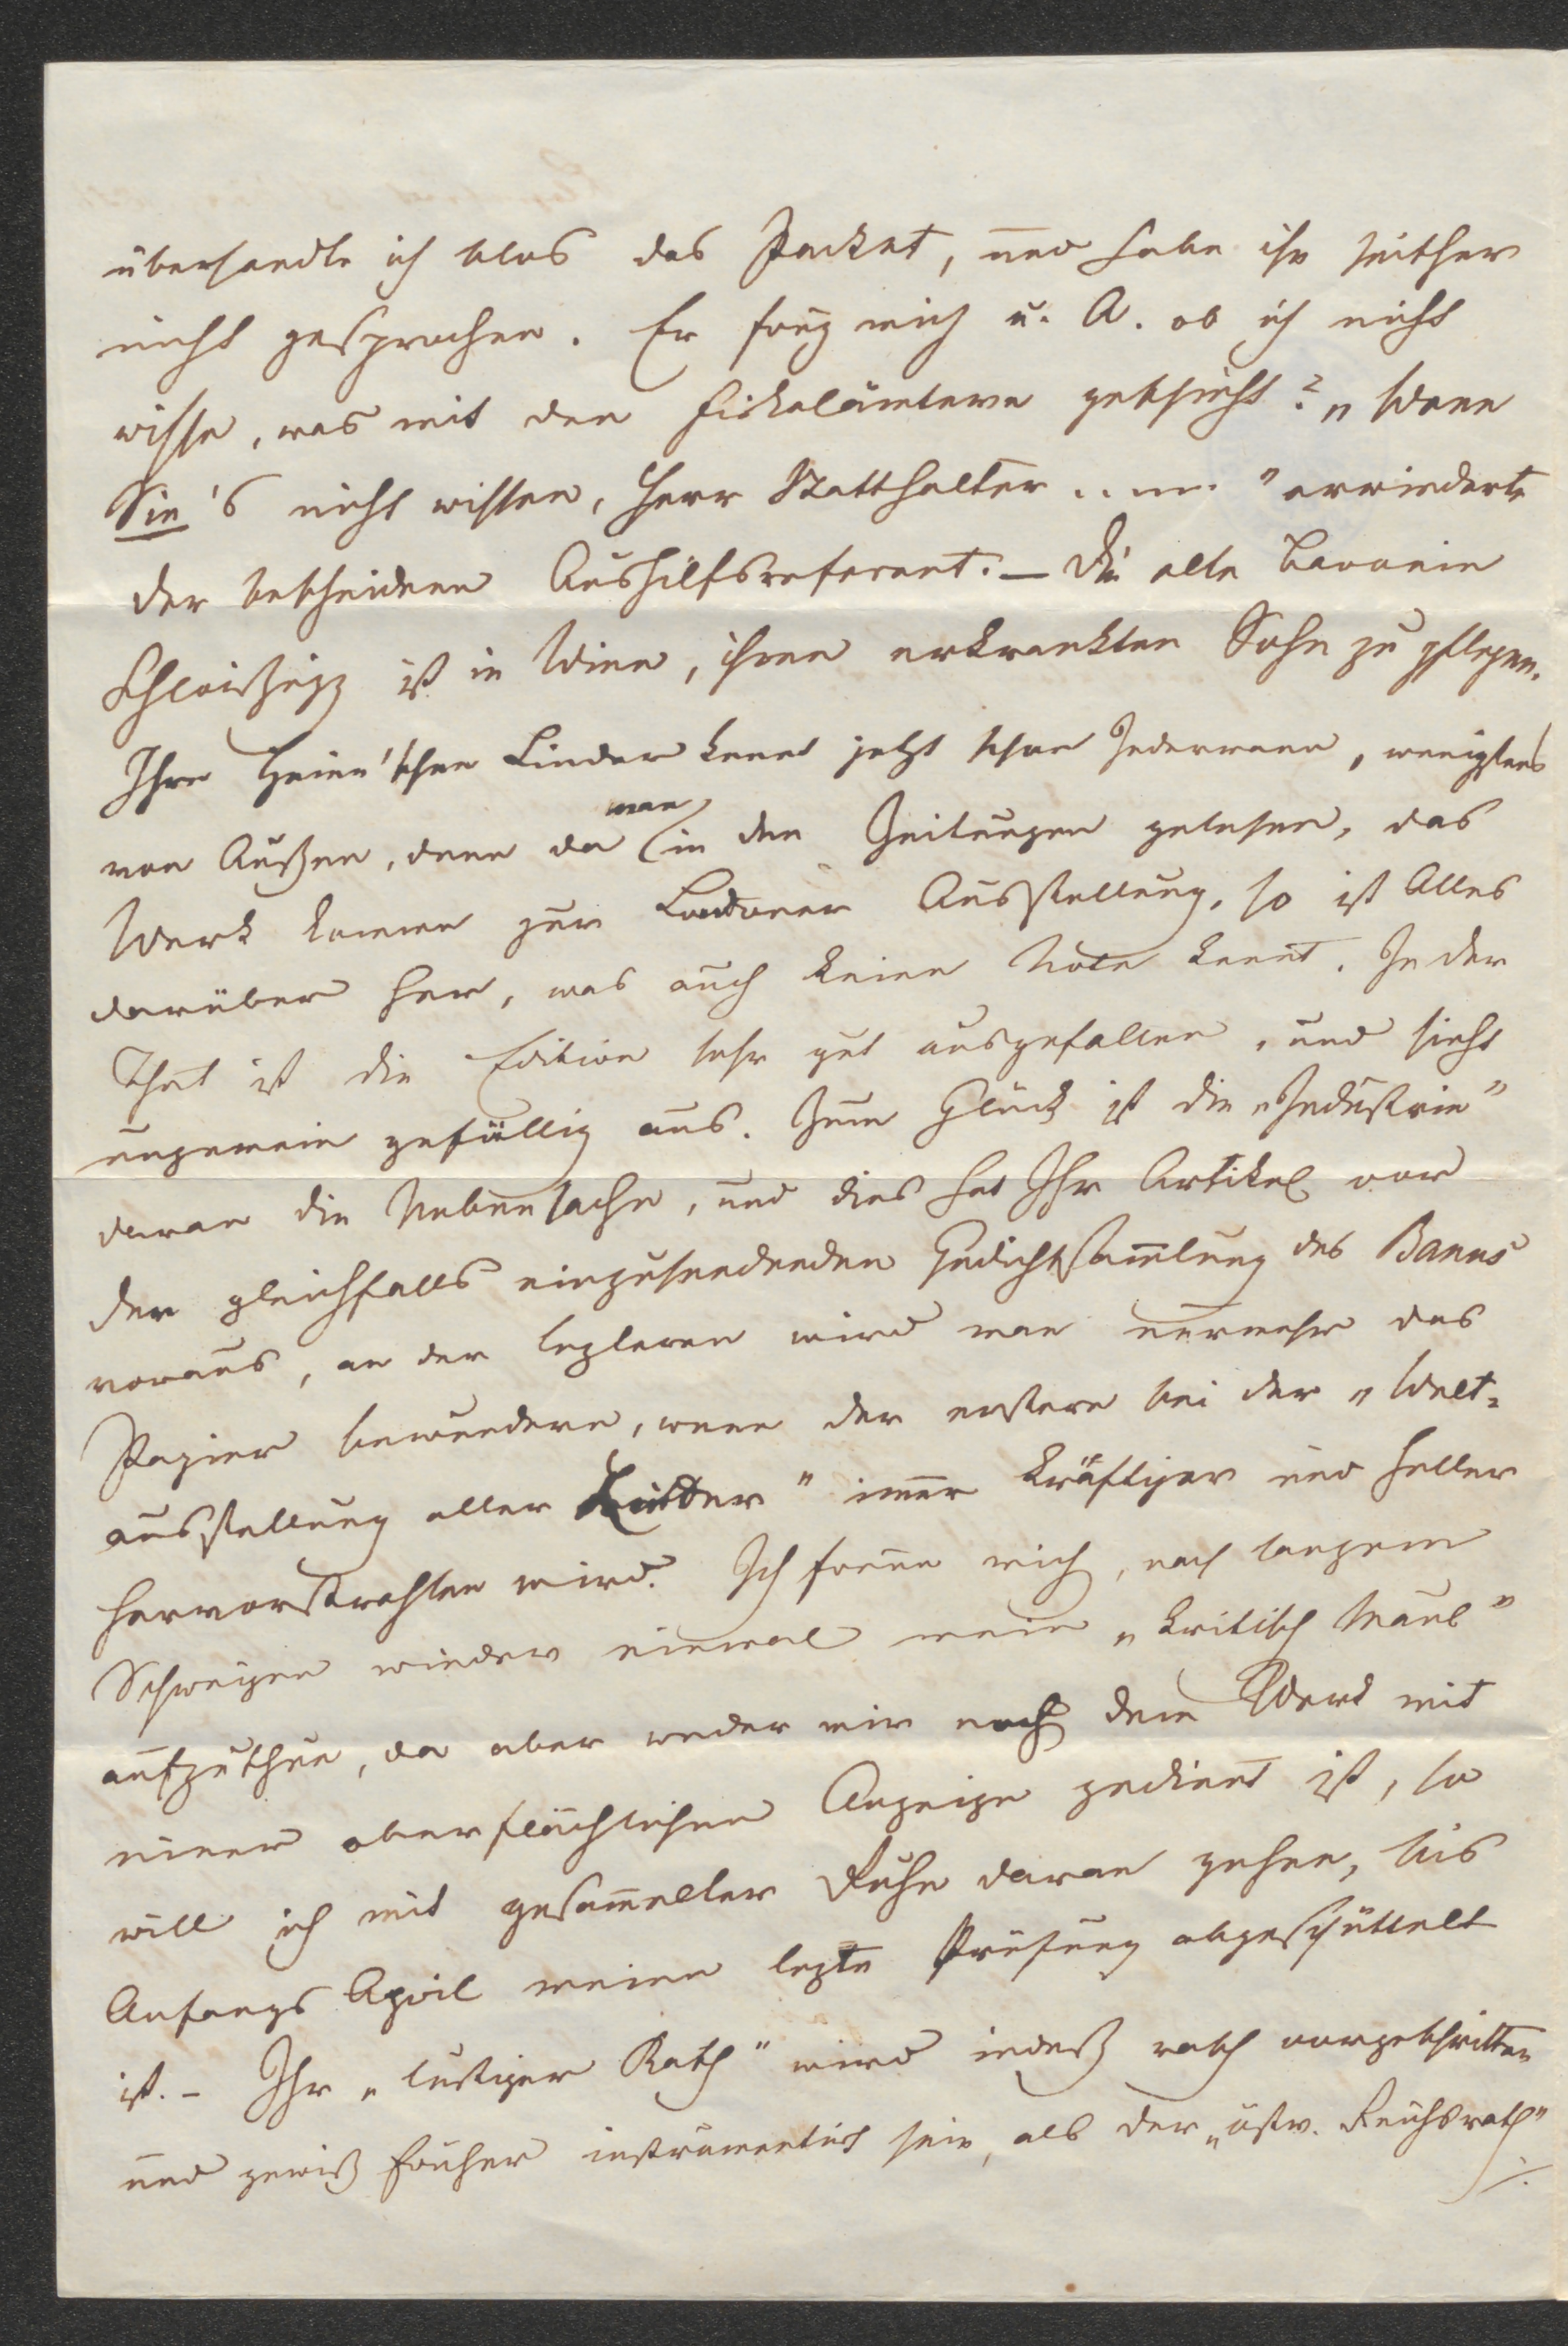 übersandte ich blos das Packet, und habe ihn seither
nicht gesprochen. Er frug mich u. A. ob ich nicht
wisse, was mit den Fiskalämtern geschieht? „Wenn
Sie's nicht wissen, Herr Statthalter ....." erwiederte
der bescheidene Aushilfsreferent. – Die alte Baronin
ist in Wien, ihren erkrankten Sohn zu pflegen.
Ihre Heine'schen Lieder kennt jetzt schon Jedermann, wenigstens
von Außen, denn da man in den Zeitungen gelesen, das
Werk komme zur Londoner Ausstellung, so ist Alles
darüber her, was auch keine Note kennt. In der
That ist die Edition sehr gut ausgefallen, und sieht
ungemein gefällig aus. Zum Glück ist die „Industrie"
daran die Nebensache, und dies hat Ihr Artikel vor
der gleichfalls einzusendenden Gedichtsam̅lung des Banus
voraus, an der letzteren wird man nurmehr das
Papier bewundern, wenn der erstere bei der „Welt-
ausstellung aller Lieder" im̅er kräftiger und heller
hervorstrahlen wird. Ich freue mich, nach langem
Schweigen wieder einmal mein „kritisch Maul"
aufzuthun, da aber weder mir noch dem Werk mit
einer oberflächlichen Anzeige gedient ist, so
will ich mit gesam̅elter Ruhe daran gehen, bis
Anfangs April meine lezte Prüfung abgeschüttelt
ist. – Ihr „lustiger Rath" wird indeß rasch vorgeschritten
und gewiß früher instrumentirt sein, als der „östr. Reichsrath"
./.